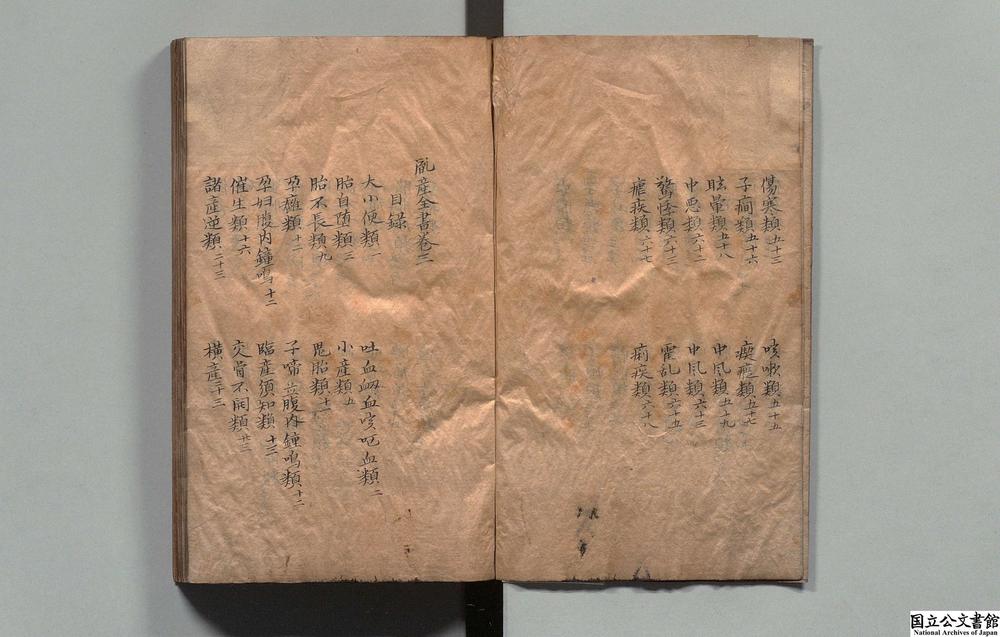 傷寒類五十三
咳嗽類五十五
子癎類五十六
瘈瘲類五十七
眩暈類五十八
中風類五十九
中悪類六十二
中風類六十三
驚悸類六十三
霍乱類六十五
瘧疾類六十七
痢疾類六十八
胤産全書卷三
目録
大小便類一
吐血衂血咳咯血類二
胎自堕類三
小産類五
胎不長類九
鬼胎類十一
孕癰類十二
子啼并腹内鐘鳴類十二
孕妇腹内鐘鳴十二
臨産須知類十三
催生類十六
交骨不開類廿三
諸産逆類二十三
横産三十三
国立公文書館
National Archives of Japan